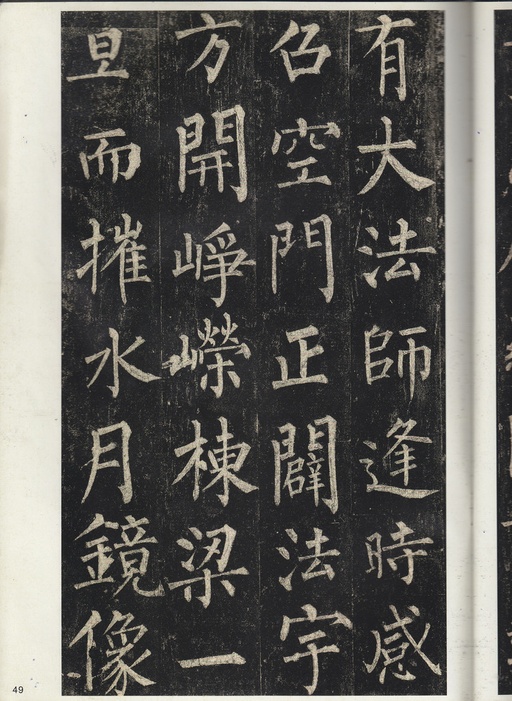 有大法師逢時感
召空門正闢法宇
方開崢嶸棟梁一
旦而摧水月鏡像
49